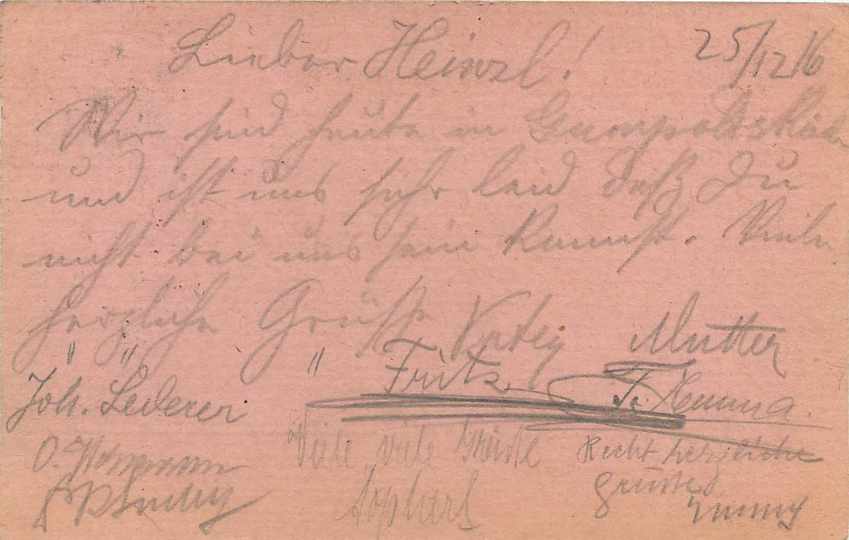 25/12 16
Lieber Heinzl!
Wir sind heute in
und ist uns sehr leid daß Du
nicht bei uns sein kannst. Viele
herzliche Grüsse Mutter
" " " Fritz
Joh. Lederer
Viele viele Grüsse Recht herzliche
Grüsse
Emmy